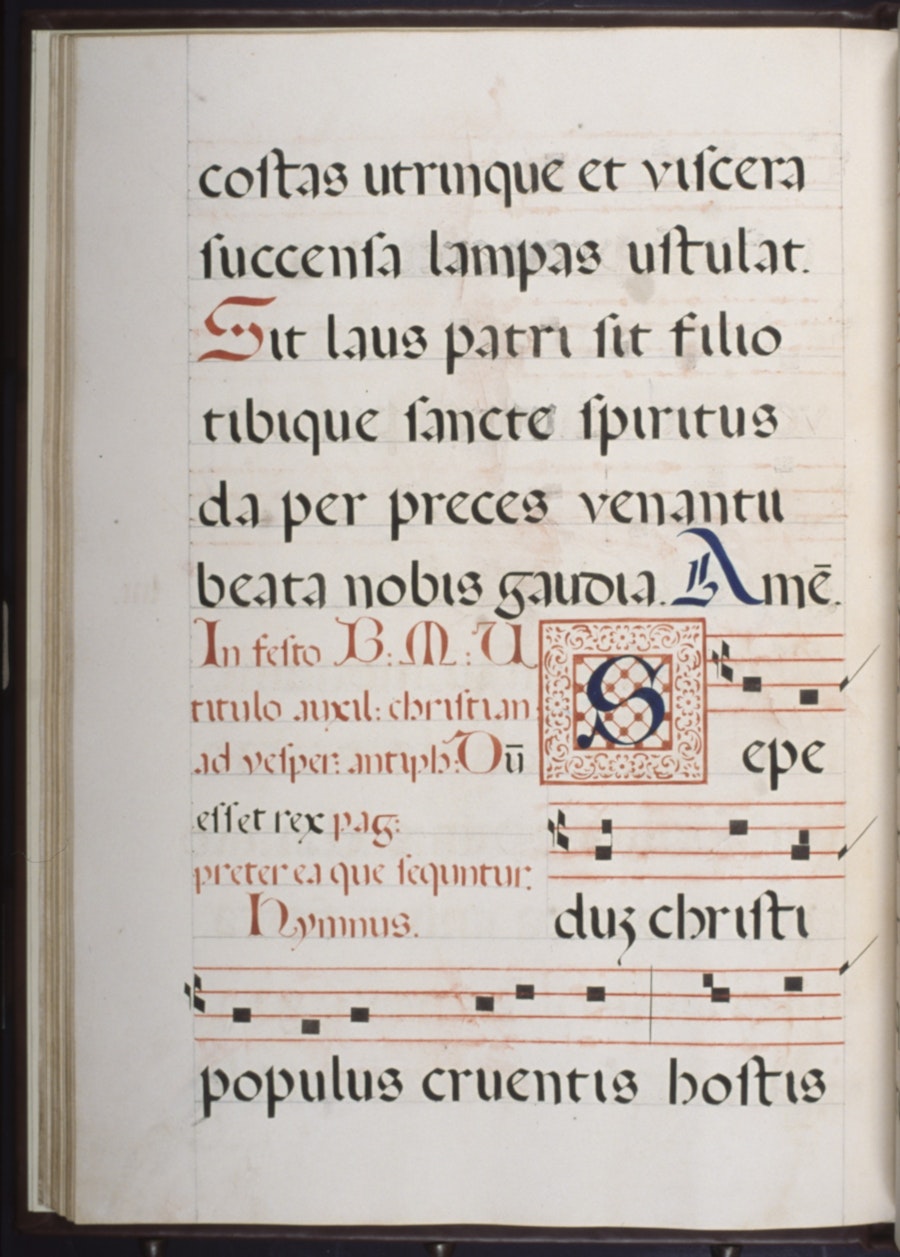 coſtas utrinque et viſcera
ſuccenſa lampas uſtulat.
Sit laus patri ſit filio
tibique ſancte ſpiritus
da per preces venantii
beata nobis gaudia. Amē.
In feſto B: M: V
titulo auxil: chriſtian:
ad veſper: antiph: Dū
eſſet rex pag:
preter ea que ſequntur.
Hymnus.
Sepe
duʒ chriſti
populus cruentis hoſtis